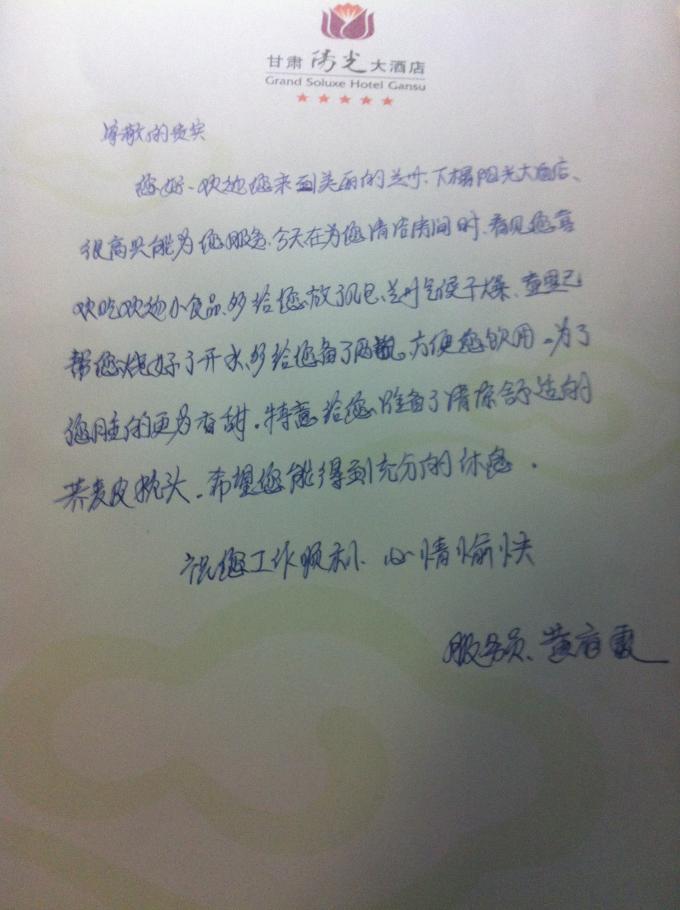 甘肃阳光大酒店
Grand Soluxe Hotel Gansu
尊敬的贵宾
您好、欢迎您来到美丽的兰州、下榻阳光大酒店、
很高兴能为您服务、今天在为您清洁房间时、看见您喜
欢吃小食品、多给您放了几包、兰州气候干燥、
帮您烧好了开水、多给您备了两瓶。方便您饮用。为了
您睡的更为香甜。特意给您准备了清凉舒适的
荞麦皮枕头。希望您能得到充分的休息。
祝您工作顺利、心情愉快
服务员、黄